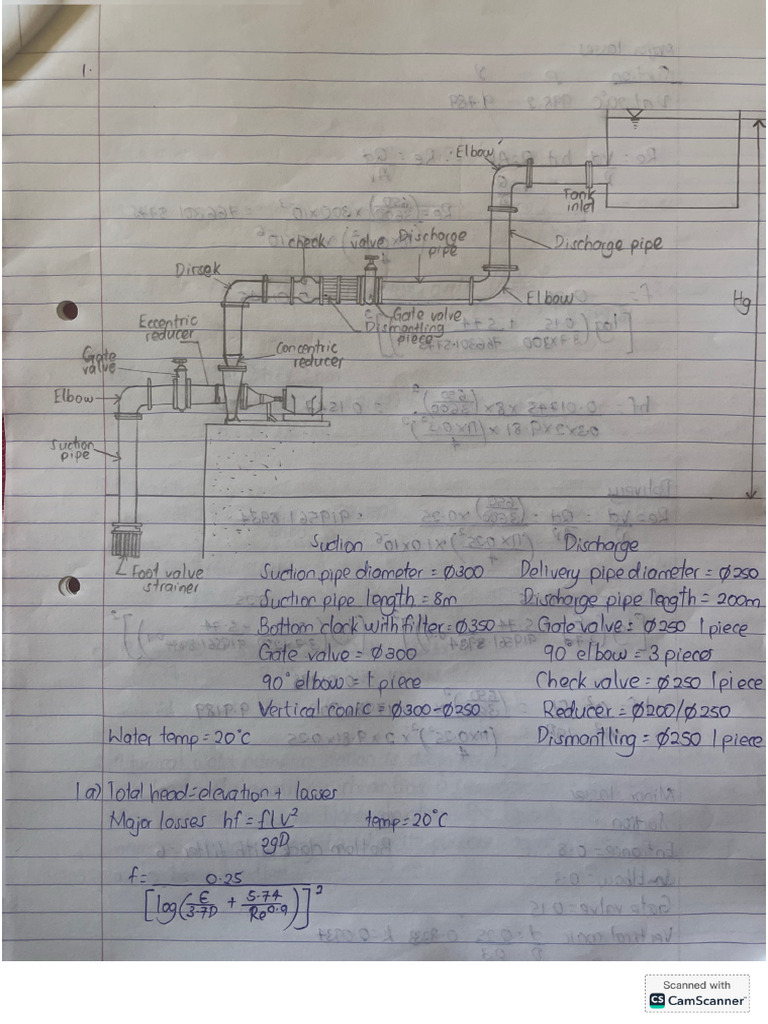 1.
Elbow
Tank
inlet
check valve
Discharge
pipe
Discharge pipe
Elbow
Gate valve
Dismantling
piece
Hg
Eccentric
reducer
Concentric
reducer
Gate
valve
Elbow
Suction
pipe
Foot valve
strainer
Suction Discharge
Suction pipe diameter = Ø300 Delivery pipe diameter = Ø250
Suction pipe length = 8m Discharge pipe length = 200m
Bottom clack with filter = Ø350 Gate valve = Ø250 1 piece
Gate valve = Ø300 90° elbow = 3 pieces
90° elbow = 1 piece Check valve = Ø250 1 piece
Vertical conic = Ø300-Ø250 Reducer = Ø200/Ø250
Water temp = 20°C Dismantling = Ø250 1 piece
1a) Total head = elevation + losses
Major losses hf = flv² temp = 20°C
2gD
f = 0.25
[log(ε/3.7D + 5.74/Re^0.9)]²
Scanned with
CS CamScanner